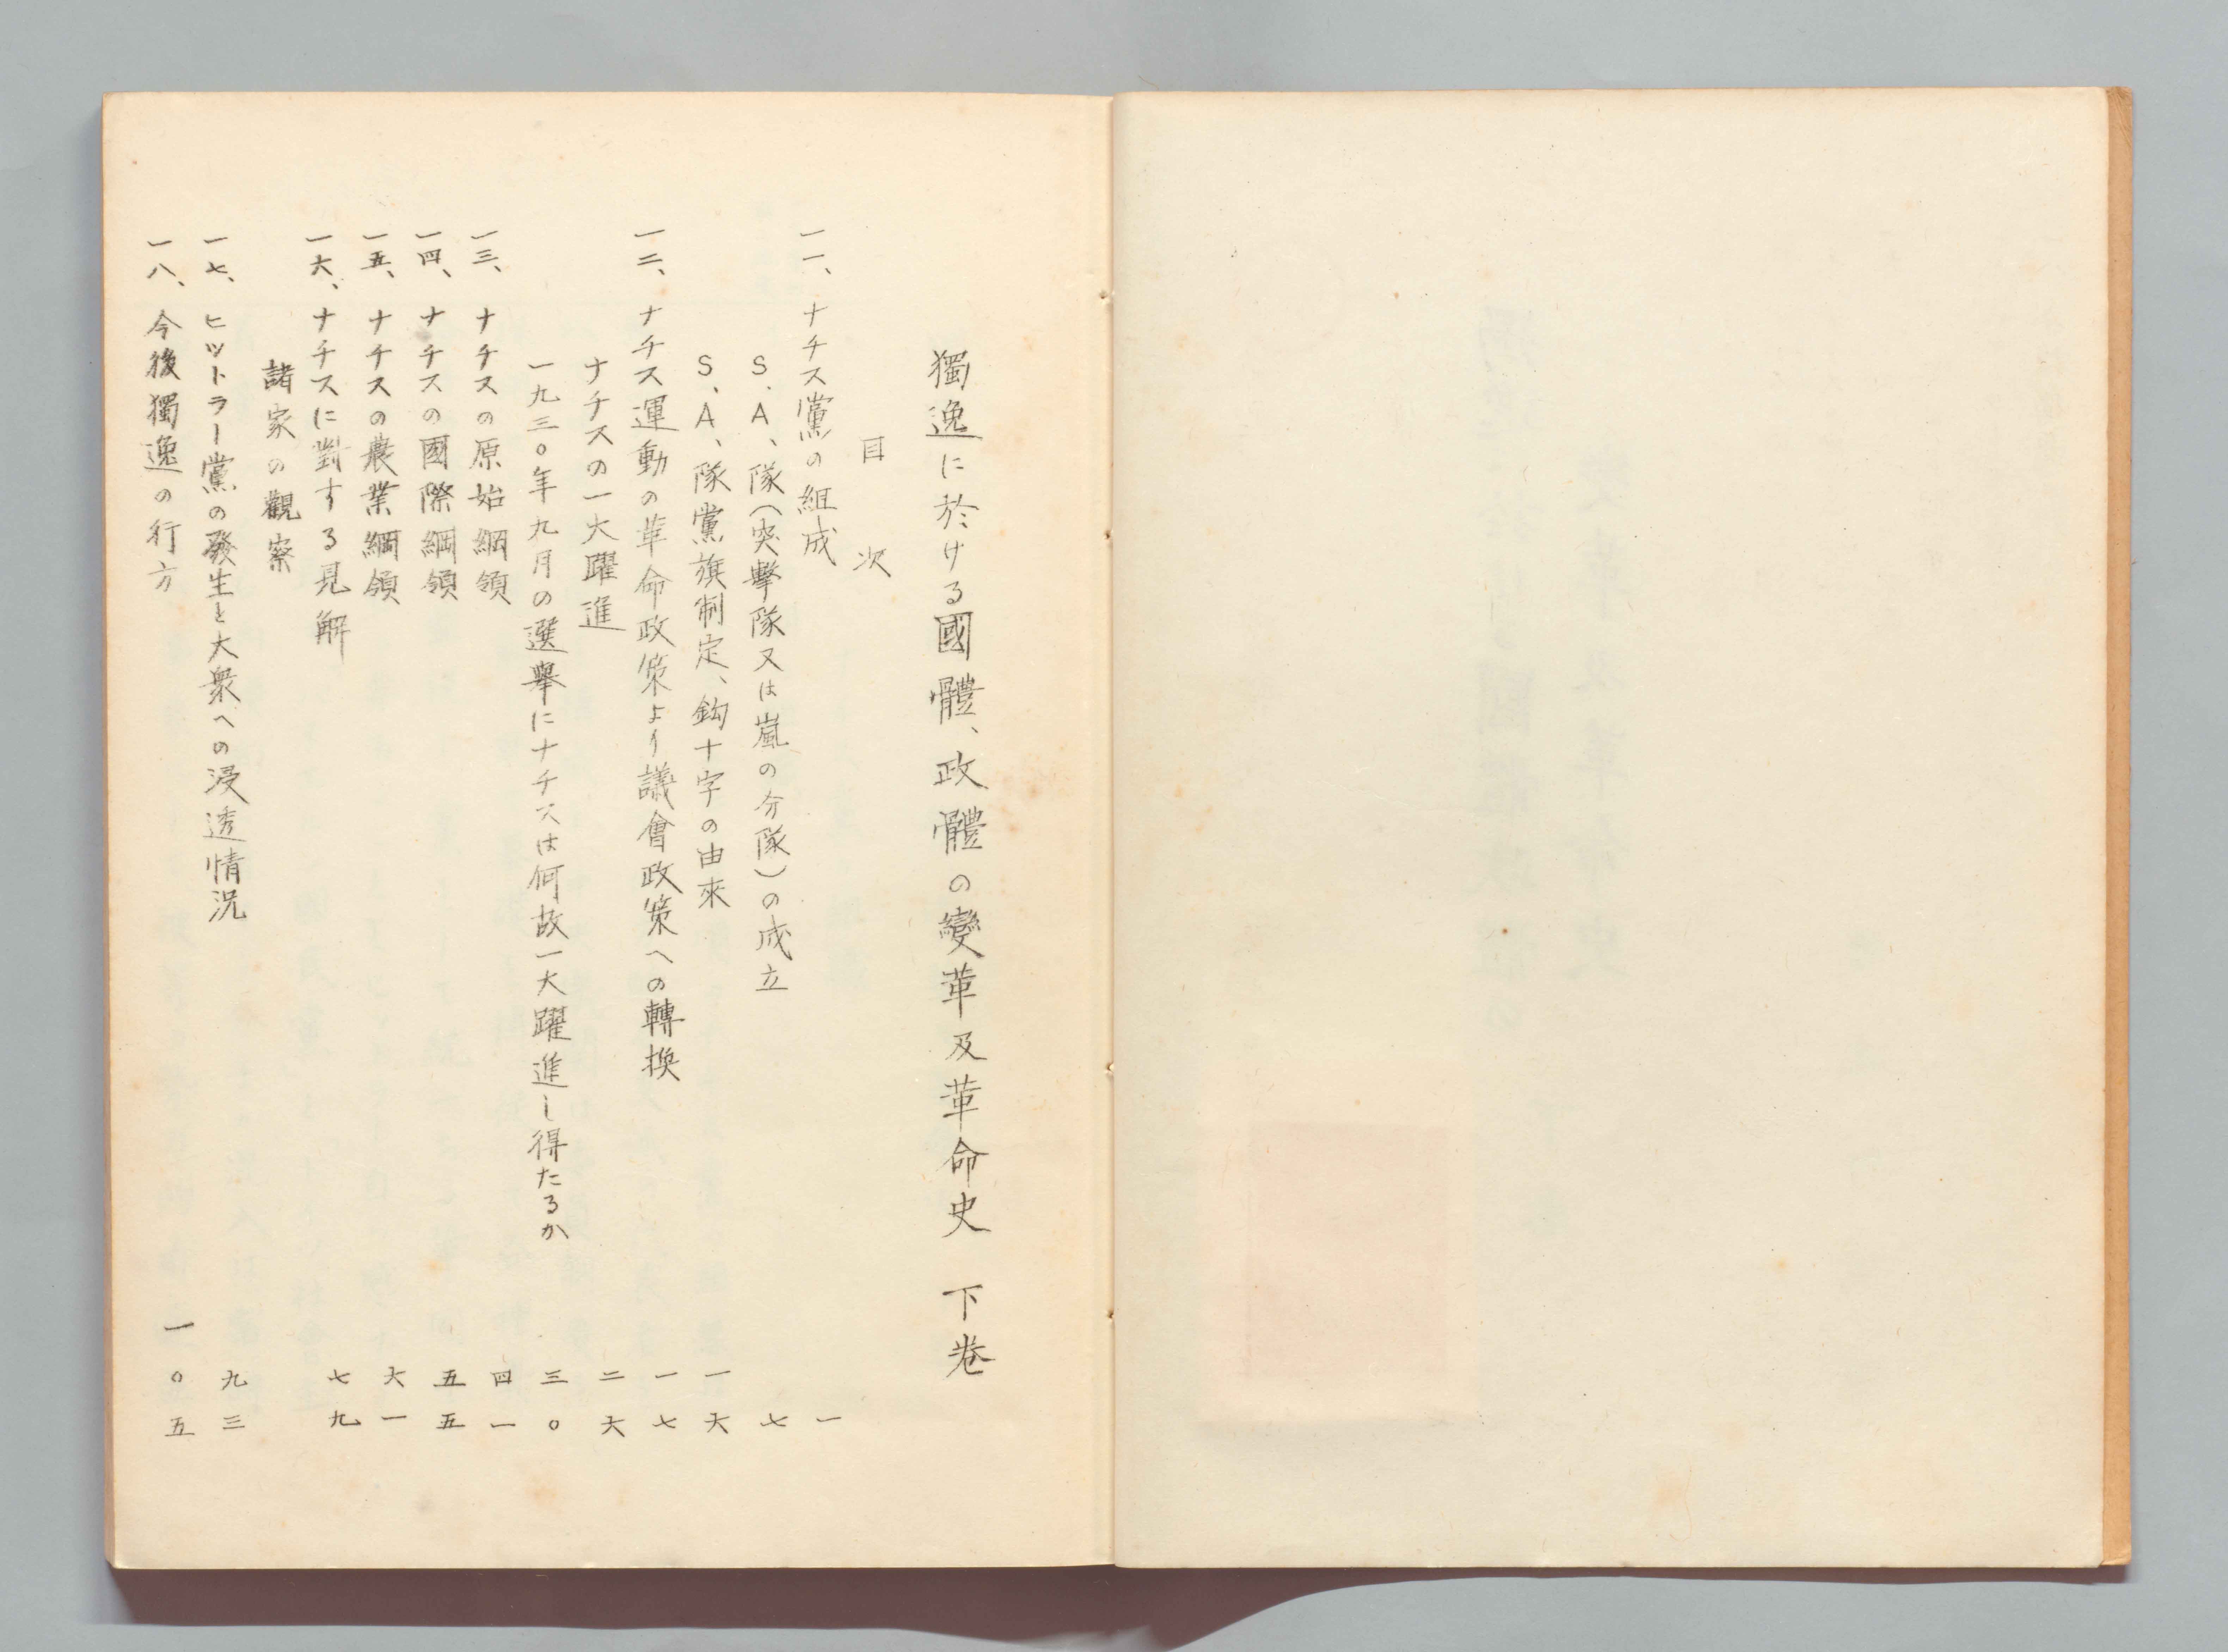 獨逸に於ける國體、政體の變革及革命史　下巻
目次
一一、ナチス黨の組成　一
S.A、隊（突擊隊又は嵐の分隊）の成立　七
S、A、隊黨旗制定、鈎十字の由來　一六
一二、ナチス運動の革命政策より議會政策への轉換　一七
ナチスの一大躍進　二六
一九三〇年九月の選擧にナチスは何故一大躍進し得たるか　三〇
一三、ナチスの原始綱領　四一
一四、ナチスの國際綱領　五五
一五、ナチスの農業綱領　六一
一六、ナチスに對する見解　七九
諸家の觀察
一七、ヒットラー黨の發生と大衆への浸透情況　九三
一八、今後獨逸の行方　一〇五